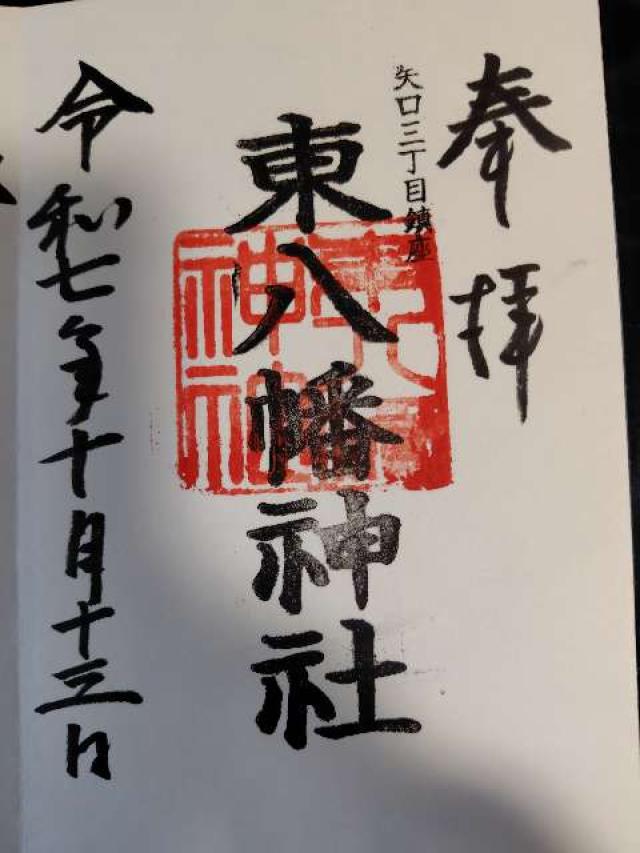 奉拝
矢口三丁目鎮座
東八幡神社
令和七年十月十三日